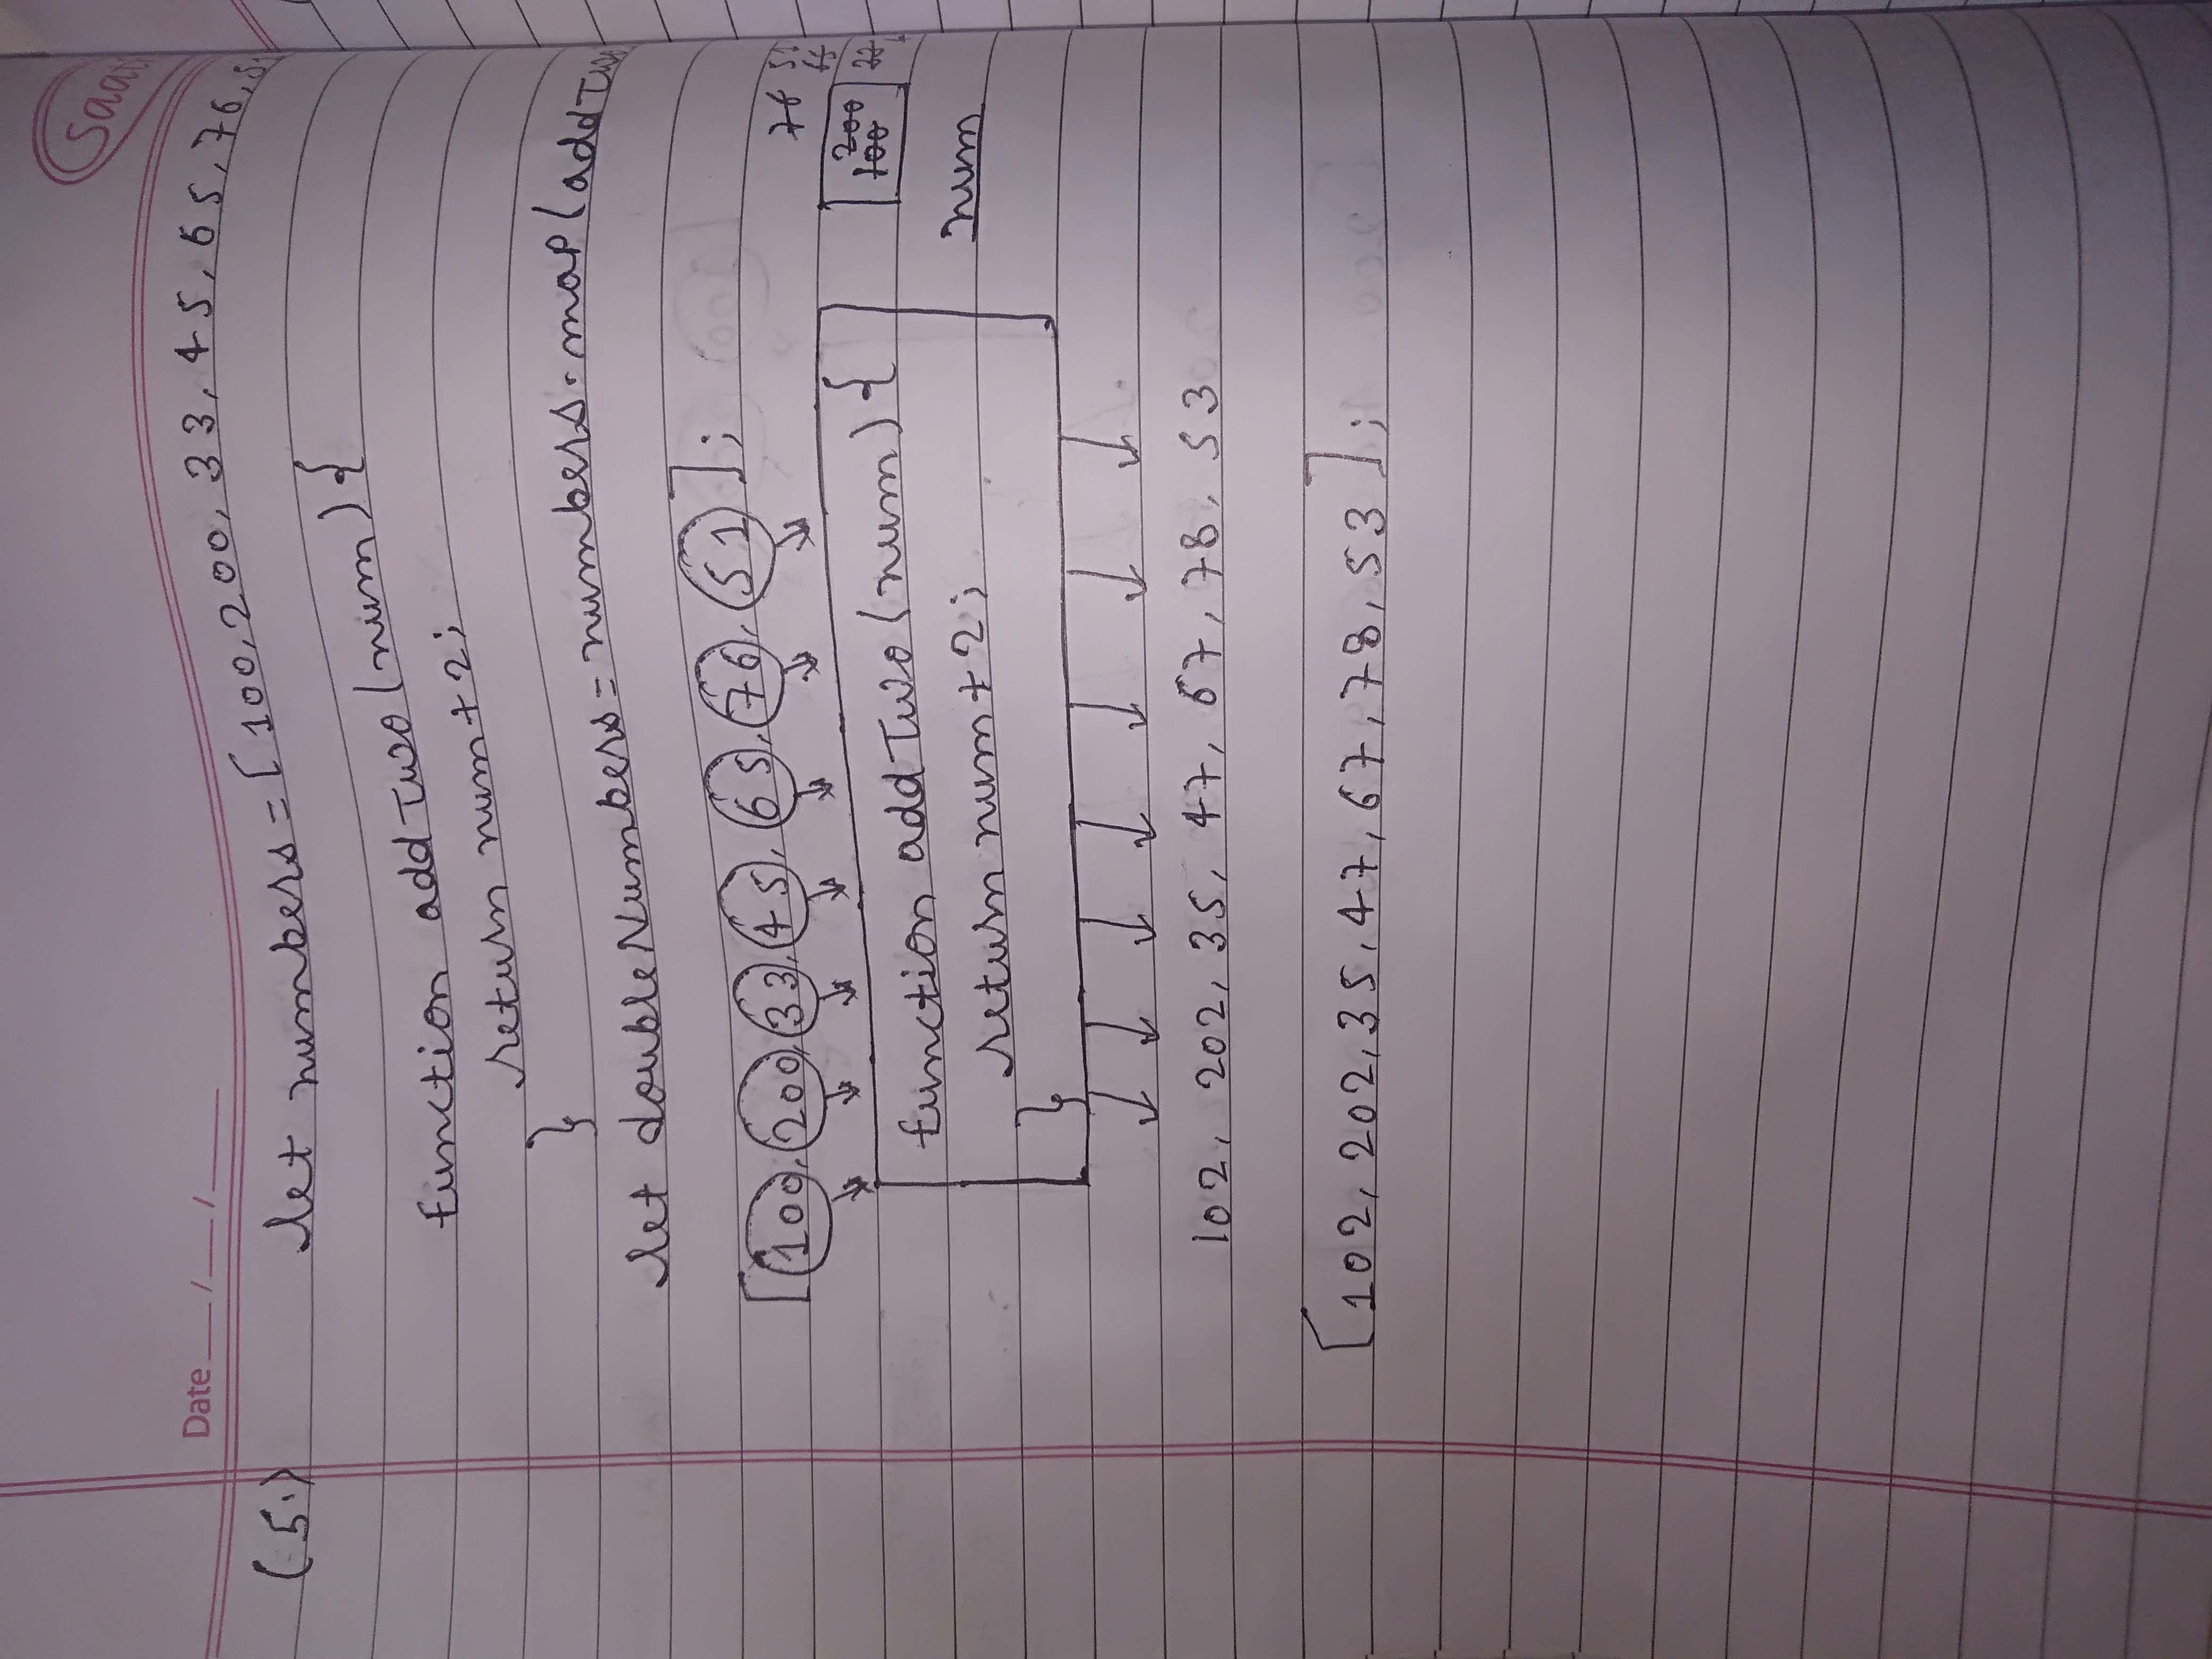 Saat
Date __/__/__
(5.) let numbers = [100,200,33,45,65,76,5
function addTwo(num){
return num+2;
}
let doubleNumbers = numbers.map(addTwo
[100,200,33,45,65,76,51];
76 51
200
100
num
function addTwo(num){
return num+2;
}
102, 202, 35, 47, 67, 78, 53
[102, 202, 35, 47, 67, 78, 53];